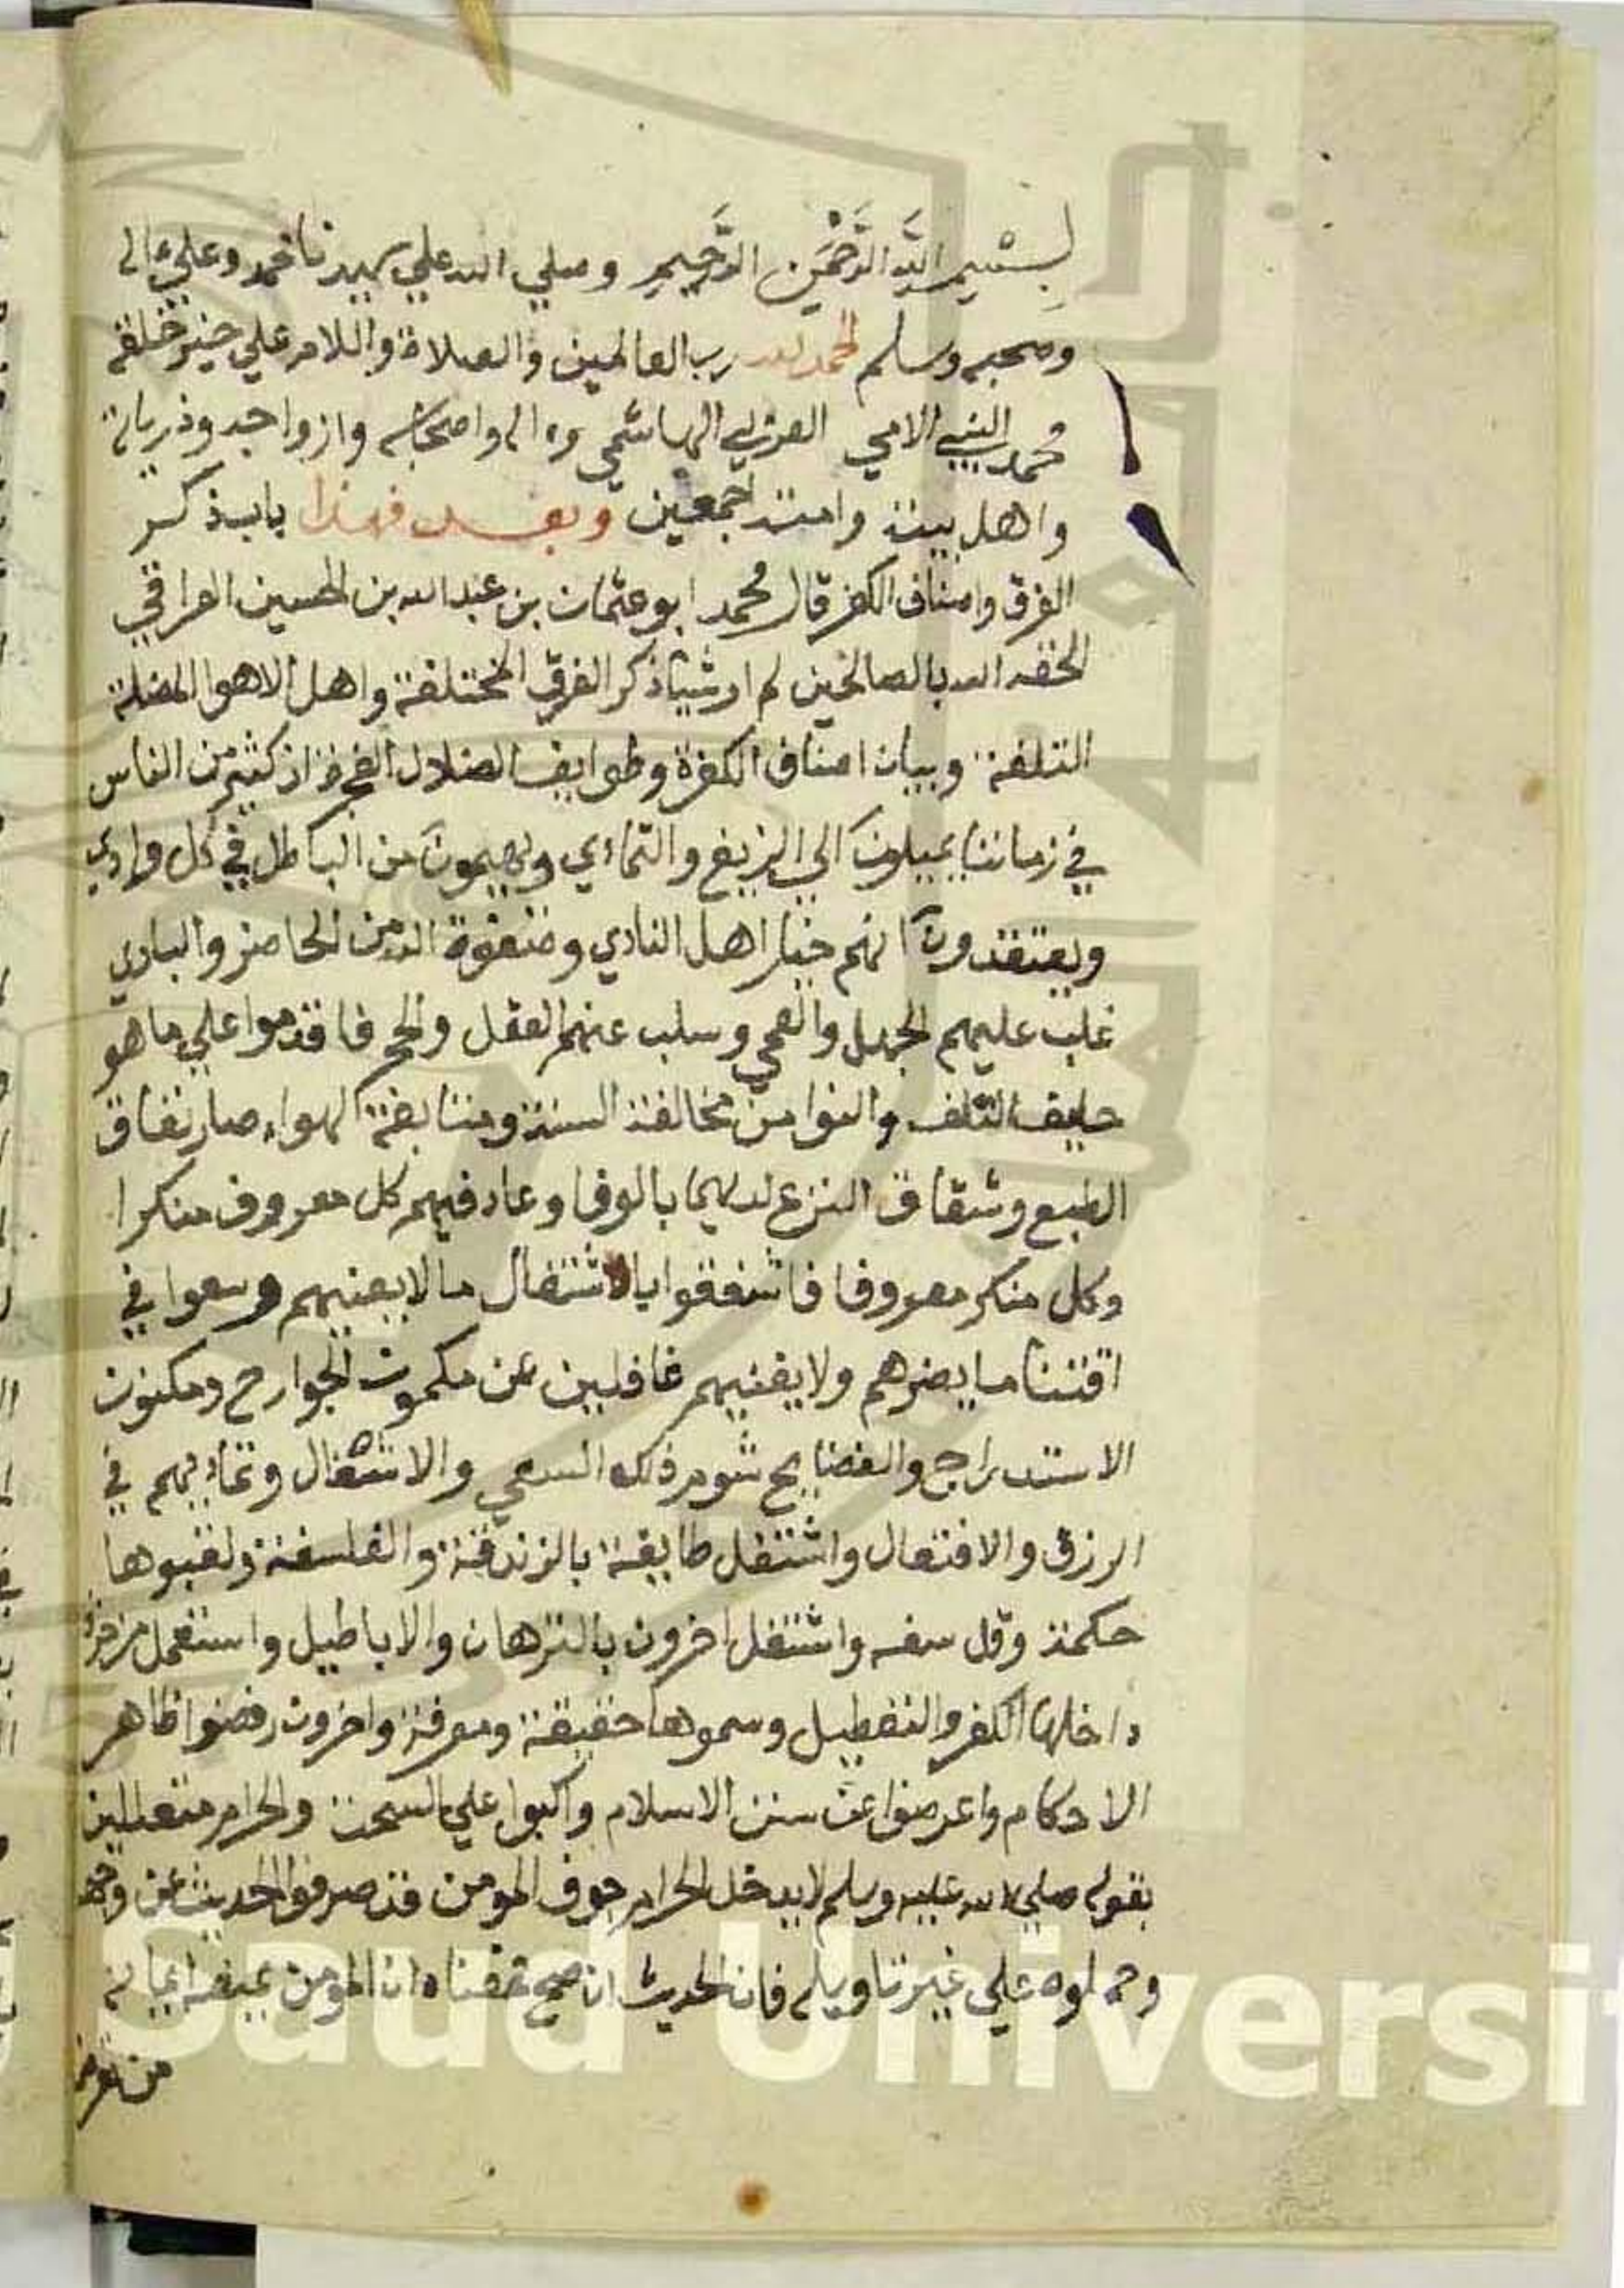 بِسْمِ اللَّهِ الرَّحْمَنِ الرَّحِيمِ وصلي الله علي سيدنا محمد وعلي ءالى
وصحبه وسلم الحمد لله رب العالمين والصلاة والسلام علي خير خلقه
محمد النبي الامي العربي الهاشمي وءاله واصحابه وازواجه وذرياته
واهل بيته وامته اجمعين وبعد فهذا باب ذكر
الفرق واصناف الكفر قال محمد ابو عثمان بن عبد الله بن الحسين العراقي
الحقه الله بالصالحين لم ار شيئا ذكر الفرق المختلفة واهل الاهوا المضلة
التلفة وبيان اصناف الكفرة وطوايف الضلال الفجرة اذ كثير من الناس
في زماننا يميلون الي الزيغ والتمادي ويهيمون من الباطل في كل وادي
ويعتقدون انهم خيار اهل النادي وصفوة الله من الحاضر والبادي
غلب عليهم الجهل والعمي وسلب عنهم العقل والحج فاقدموا علي ما هو
حليف التلف والنوا من مخالفة السنة ومتابعة الهواء صار نفاق
الطبع وشقاق النزع لديهما بالوفا وعاد فيهم كل معروف منكرا
وكل منكر معروفا فاشفقوا بالاشتغال ما لا يعنيهم وسعوا في
اقتنا ما يضرهم ولا يغنيهم غافلين عن مكموث الجوارح ومكنون
الاستدراج والفضايح شوم ذلك السعي والاشتغال وتماديهم في
الرزق والافتعال واشتغل طايفة بالزندقة والفلسفة ولقبوها
حكمة وقل سفه واشتغل اخرون بالترهات والاباطيل واستعمل مزخرف
داخلها الكفر والتعطيل وسموها حقيقة ومعرفة واخرون رفضوا ظاهر
الاحكام واعرضوا عن سنن الاسلام واكبوا علي السحت والحرام متعللين
بقوله صلي الله عليه وسلم لا يدخل الحرام جوف المومن قد صرفوا الحديث عن وجهه
وحملوه علي غير تاويله فان الحديث ان صح فمعناه ان المومن يمنعه ايمانه
من
King Saud University